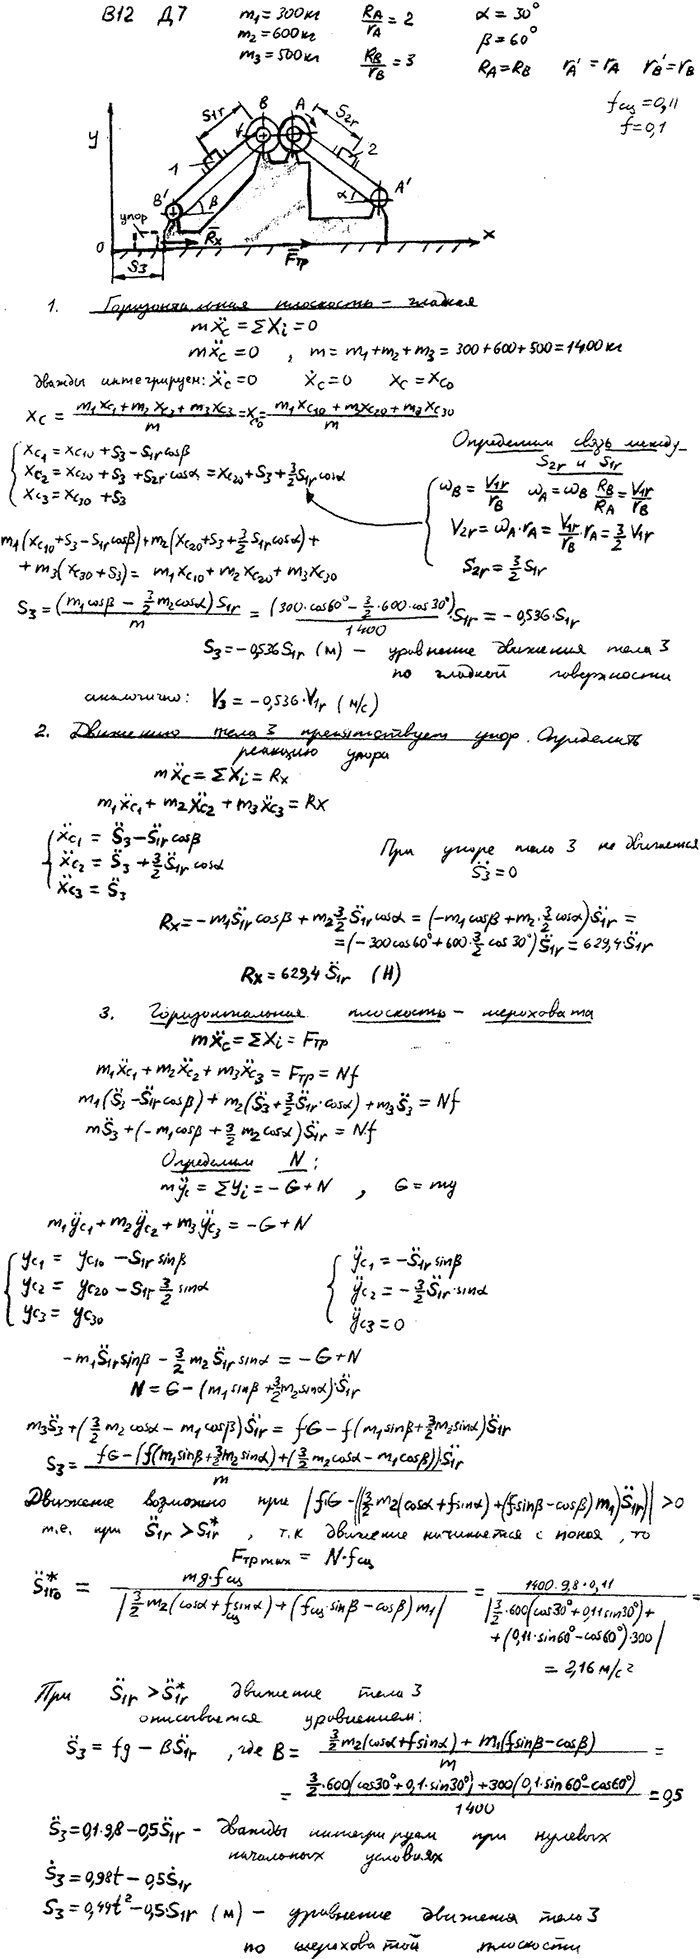 В12 Д7 m₁ = 300кг R_A/r_A = 2 α = 30°
m₂ = 600кг β = 60°
m₃ = 500кг R_B/r_B = 3 R_A = R_B r_A' = r_A r_B' = r_B
f_сц = 0,11
f = 0,1
y S₁r B A S₂r
1 2
B' β α A'
упор R̅x F̅тр x
0 S₃
1. Горизонтальная плоскость – гладкая
mẍc = ΣXi = 0
mẍc = 0 , m = m₁ + m₂ + m₃ = 300 + 600 + 500 = 1400 кг
дважды интегрируем: ẍc = 0 ẋc = 0 xc = xc₀
xc = (m₁xc₁ + m₂xc₂ + m₃xc₃)/m = xc₀ = (m₁xc₁₀ + m₂xc₂₀ + m₃xc₃₀)/m
Определим связь между
S₂r и S₁r
xc₁ = xc₁₀ + S₃ – S₁r cosβ
xc₂ = xc₂₀ + S₃ + S₂r·cosα = xc₂₀ + S₃ + 3/2 S₁r cosα
xc₃ = xc₃₀ + S₃
ω_B = V₁r/r_B ω_A = ω_B R_B/R_A = V₁r/r_B
V₂r = ω_A·r_A = V₁r/r_B · r_A = 3/2 V₁r
S₂r = 3/2 S₁r
m₁(xc₁₀ + S₃ – S₁r cosβ) + m₂(xc₂₀ + S₃ + 3/2 S₁r cosα) +
+ m₃(xc₃₀ + S₃) = m₁xc₁₀ + m₂xc₂₀ + m₃xc₃₀
S₃ = (m₁cosβ – 3/2 m₂cosα)S₁r/m = (300·cos60° – 3/2·600·cos30°)/1400 · S₁r = –0,536·S₁r
S₃ = –0,536 S₁r (м) – уравнение движения тела 3
по гладкой поверхности
аналогично: V₃ = –0,536·V₁r (м/с)
2. Движению тела 3 препятствует упор. Определить
реакцию упора
mẍc = ΣXi = Rx
m₁ẍc₁ + m₂ẍc₂ + m₃ẍc₃ = Rx
ẍc₁ = S̈₃ – S̈₁r cosβ
ẍc₂ = S̈₃ + 3/2 S̈₁r cosα
ẍc₃ = S̈₃
При упоре тело 3 не движется
S̈₃ = 0
Rx = –m₁S̈₁r cosβ + m₂ 3/2 S̈₁r cosα = (–m₁cosβ + m₂·3/2 cosα)S̈₁r =
= (–300cos60° + 600·3/2 cos30°)S̈₁r = 629,4·S̈₁r
Rx = 629,4 S̈₁r (Н)
3. Горизонтальная плоскость – шероховата
mẍc = ΣXi = Fтр
m₁ẍc₁ + m₂ẍc₂ + m₃ẍc₃ = Fтр = Nf
m₁(S̈₃ – S̈₁r cosβ) + m₂(S̈₃ + 3/2 S̈₁r·cosα) + m₃S̈₃ = Nf
mS̈₃ + (–m₁cosβ + 3/2 m₂cosα)S̈₁r = Nf
Определим N:
mÿc = ΣYi = –G + N , G = mg
m₁ÿc₁ + m₂ÿc₂ + m₃ÿc₃ = –G + N
yc₁ = yc₁₀ – S₁r sinβ
yc₂ = yc₂₀ – S₁r 3/2 sinα
yc₃ = yc₃₀
ÿc₁ = –S̈₁r sinβ
ÿc₂ = –3/2 S̈₁r·sinα
ÿc₃ = 0
–m₁S̈₁r sinβ – 3/2 m₂S̈₁r sinα = –G + N
N = G – (m₁sinβ + 3/2 m₂sinα)·S̈₁r
m₃S̈₃ + (3/2 m₂cosα – m₁cosβ)S̈₁r = fG – f(m₁sinβ + 3/2 m₂sinα)S̈₁r
S₃ = (fG – (f(m₁sinβ + 3/2 m₂sinα) + (3/2 m₂cosα – m₁cosβ))S̈₁r)/m
Движение возможно при |fG – ((3/2 m₂(cosα + f sinα) + (f sinβ – cosβ)m₁)S̈₁r)| > 0
т.е. при S̈₁r > S̈₁r* , т.к движение начинается с покоя, то
Fтр max = N·f_сц
S̈₁r₀* = mg·f_сц/|3/2 m₂(cosα + f_сц sinα) + (f_сц·sinβ – cosβ)m₁| = 1400·9,8·0,11/|3/2·600(cos30° + 0,11 sin30°) + =
+ (0,11·sin60° – cos60°)·300|
= 2,16 м/с²
При S̈₁r > S̈₁r* движение тела 3
описывается уравнением:
S̈₃ = fg – BS̈₁r , где B = (3/2 m₂(cosα + f sinα) + m₁(f sinβ – cosβ))/m =
= (3/2·600(cos30° + 0,1·sin30°) + 300(0,1·sin60° – cos60°))/1400 = 0,5
S̈₃ = 0,1·9,8 – 0,5S̈₁r – дважды интегрируем при нулевых
начальных условиях
Ṡ₃ = 0,98t – 0,5Ṡ₁r
S₃ = 0,49t² – 0,5·S₁r (м) – уравнение движения тела 3
по шероховатой плоскости